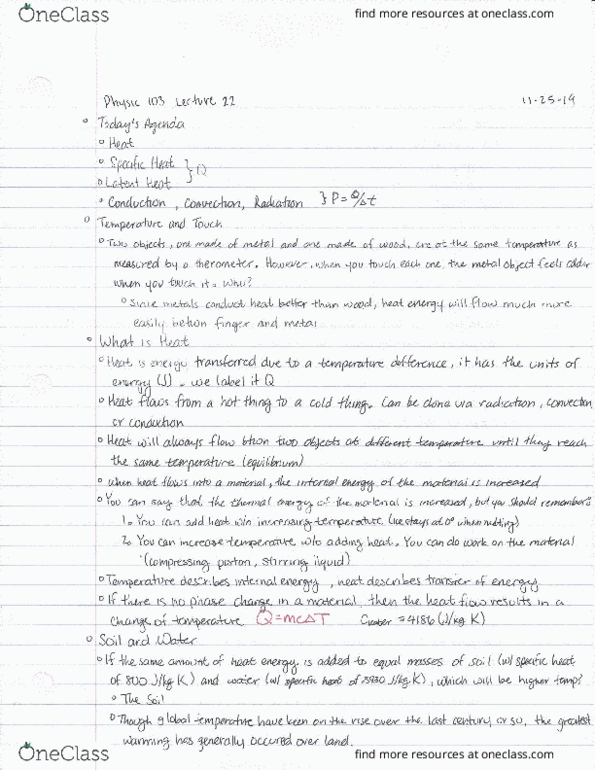 OneClass
find more resources at oneclass.com
Physic 103 Lecture 22 11-25-19
Today's Agenda
Heat
Specific Heat
Latent Heat } Q
Conduction, Convection, Radiation } P = Q/Δt
Temperature and Touch
Two objects, one made of metal and one made of wood, are at the same temperature as
measured by a therometer. However, when you touch each one, the metal object feels colder
when you touch it - Why?
Since metals conduct heat better than wood, heat energy will flow much more
easily betwn finger and metal
What is Heat
Heat is energy transferred due to a temperature difference, it has the units of
energy (J) - we label it Q
Heat flows from a hot thing to a cold thing. Can be done via radiation, convection
or conduction
Heat will always flow btwn two objects at different temperature until they reach
the same temperature (equilibrium)
When heat flows into a material, the internal energy of the material is increased
You can say that the thermal energy of the material is increased, but you should remember:
1. You can add heat w/n increasing temperature (ice stays at 0° when melting)
2. You can increase temperature w/o adding heat. You can do work on the material
(compressing piston, stirring liquid)
Temperature describes internal energy, heat describes transfer of energy
If there is no phase change in a material, then the heat flow results in a
change of temperature Q = mcΔT Cwater = 4186 (J/kg K)
Soil and Water
If the same amount of heat energy is added to equal masses of soil (w/ specific heat
of 800 J/kg K) and water (w/ specific heat of J/kg K), which will be higher temp?
The Soil
Though global temperature have been on the rise over the last century or so, the greatest
warming has generally occured over land.
OneClass
find more resources at oneclass.com